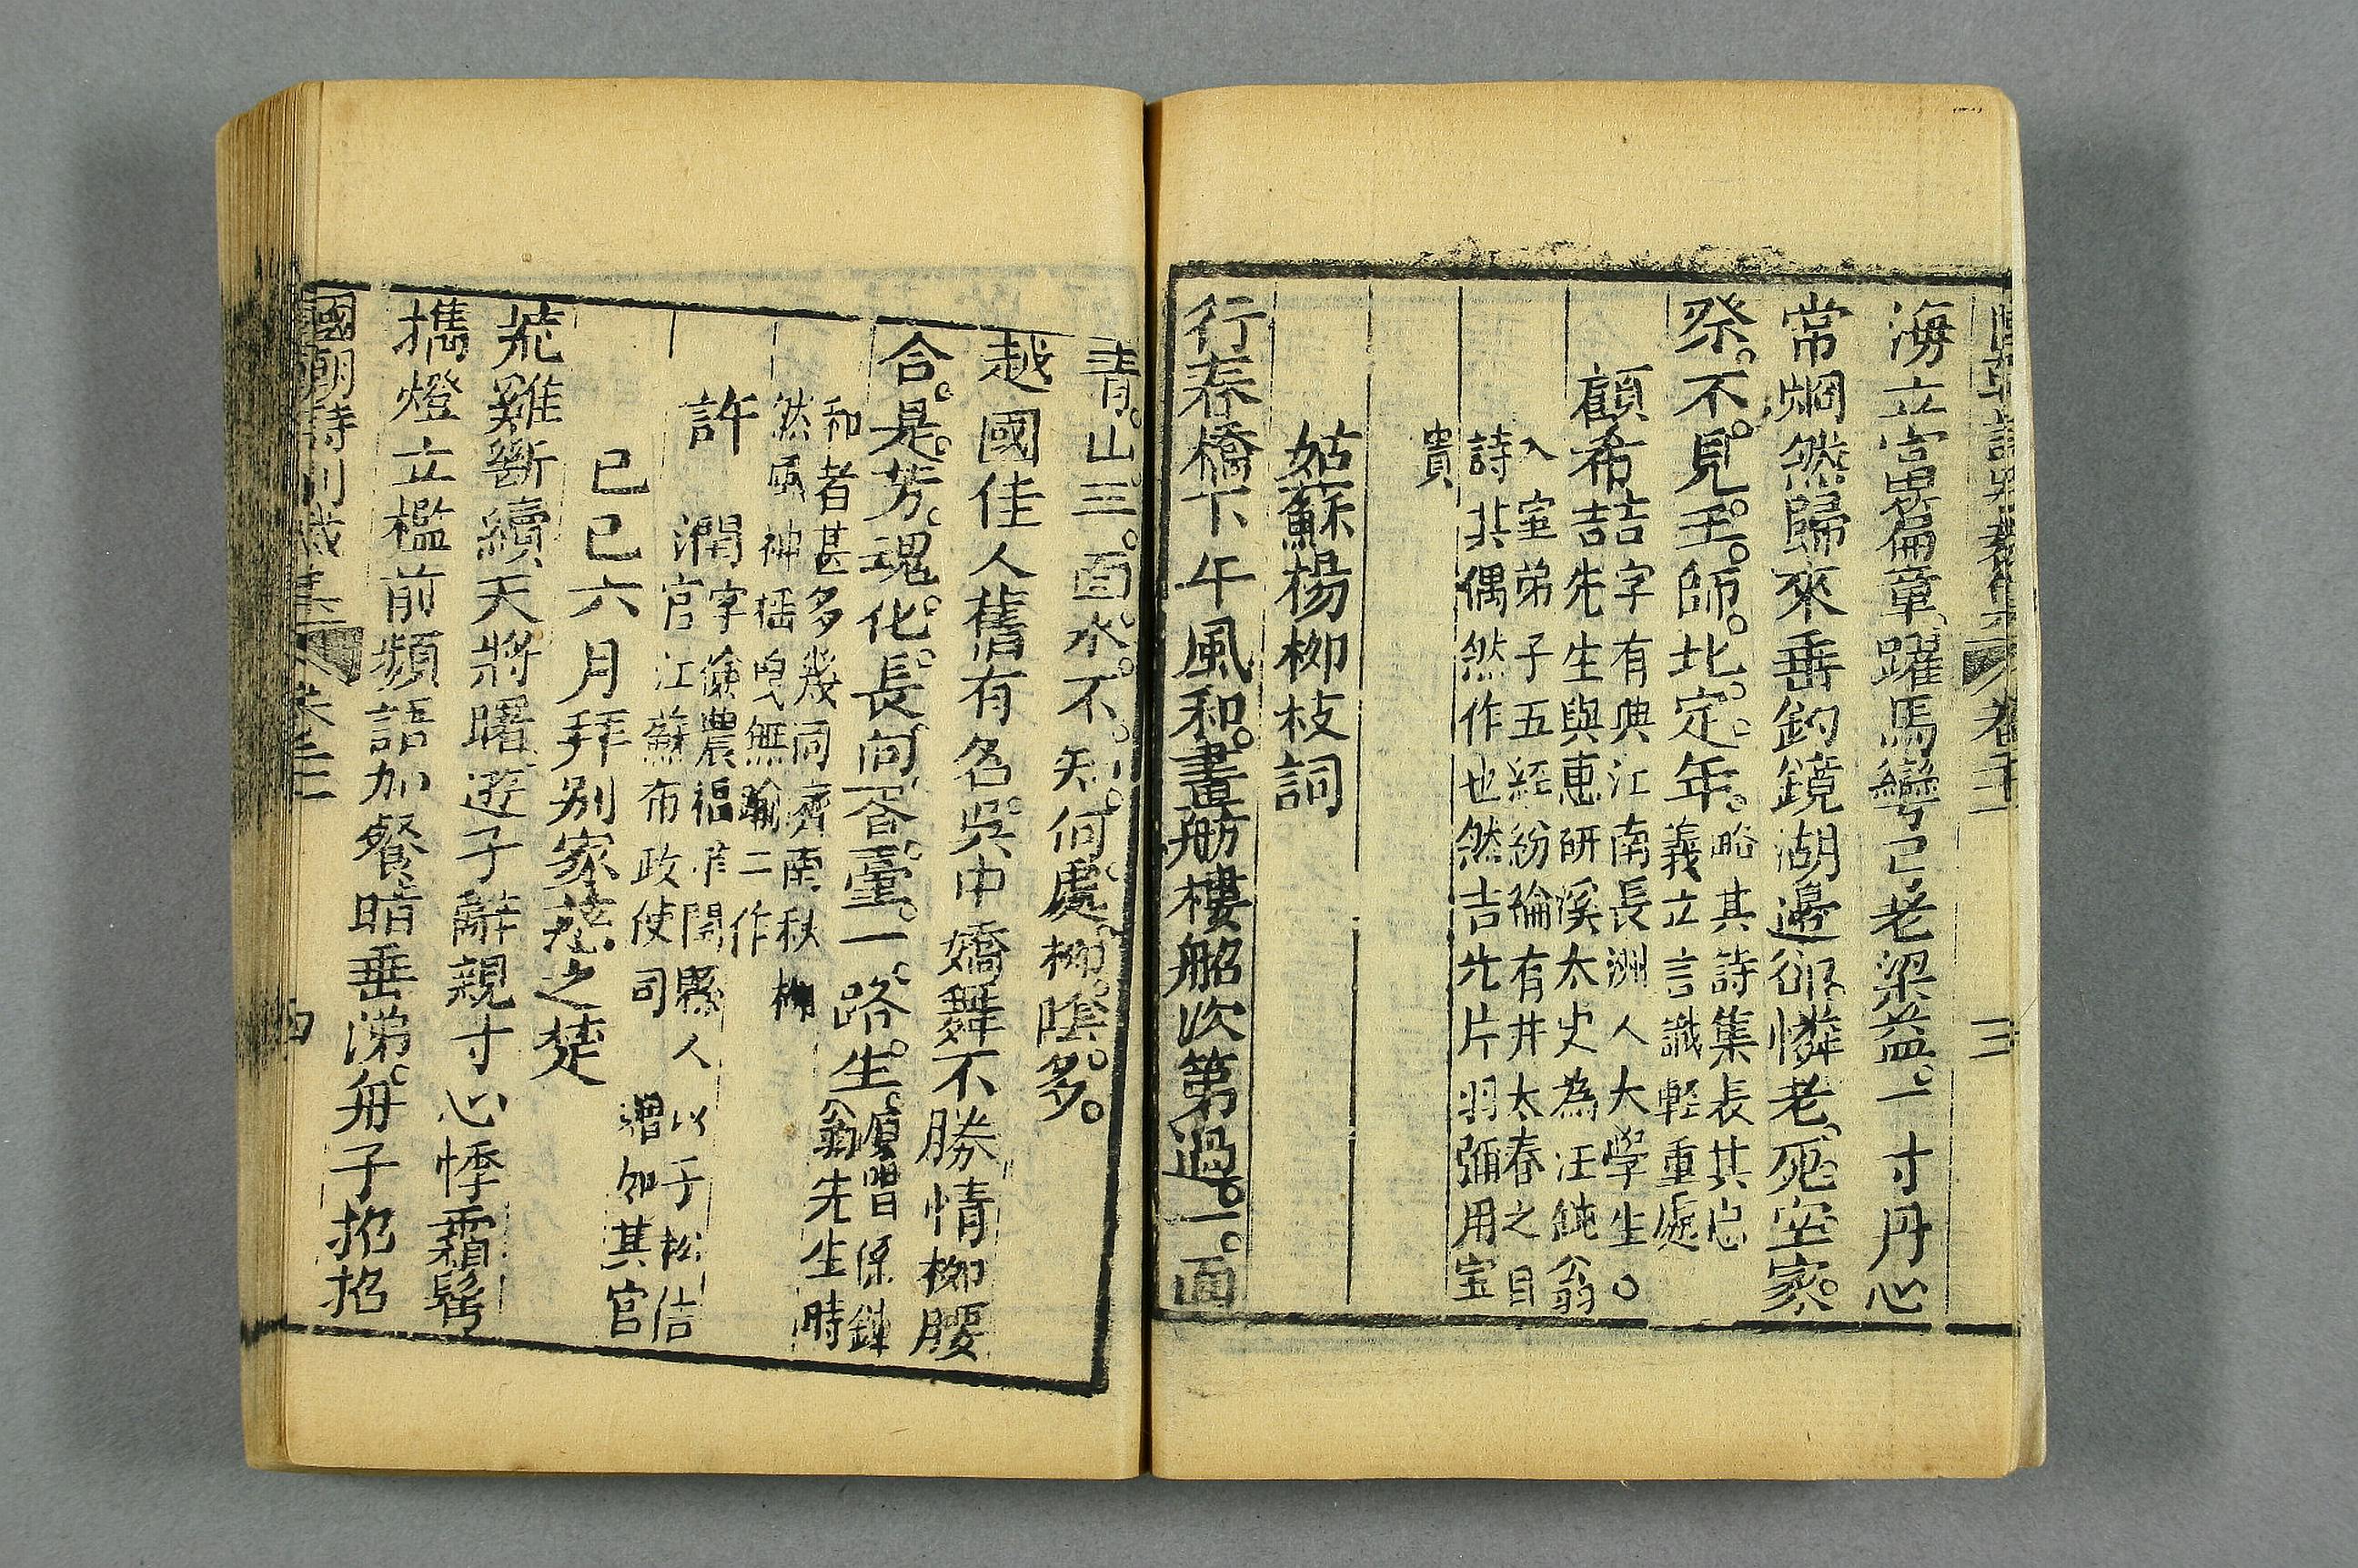 海立富男篇章躍馬彎弓已老梁益一寸丹心
常烱然歸來垂釣鏡湖邊卻憐老死空家
祭不見王師北定年略其詩集表其忠義立言識輕重處
顧希喆喆字有典江南長洲人大學生。先生與惠研溪太史為汪鈍翁
入室弟子五經紛綸有井太春之目詩其偶然作也然吉光片羽彌用宝
貴
姑蘇楊柳枝詞
行春橋下午風和畫舫樓船次第過一面
青山三面水不知何處柳陰多
越國佳人舊有名吳中嬌舞不勝情柳腰
合是芳魂化長向香臺一路生原唱係鈍翁先生時
和者甚多幾同齊南秋柳然風神搖曳無踰二作
許 潤字儉農福建閩縣人以于松信官江蘇布政使司
己巳六月拜別家慈之楚
荒雞斷續天將曙遊子辭親寸心悸霜髩
擕燈立檻前頻語加餐暗垂涕舟子招招
國朝詩別裁集 卷三 四